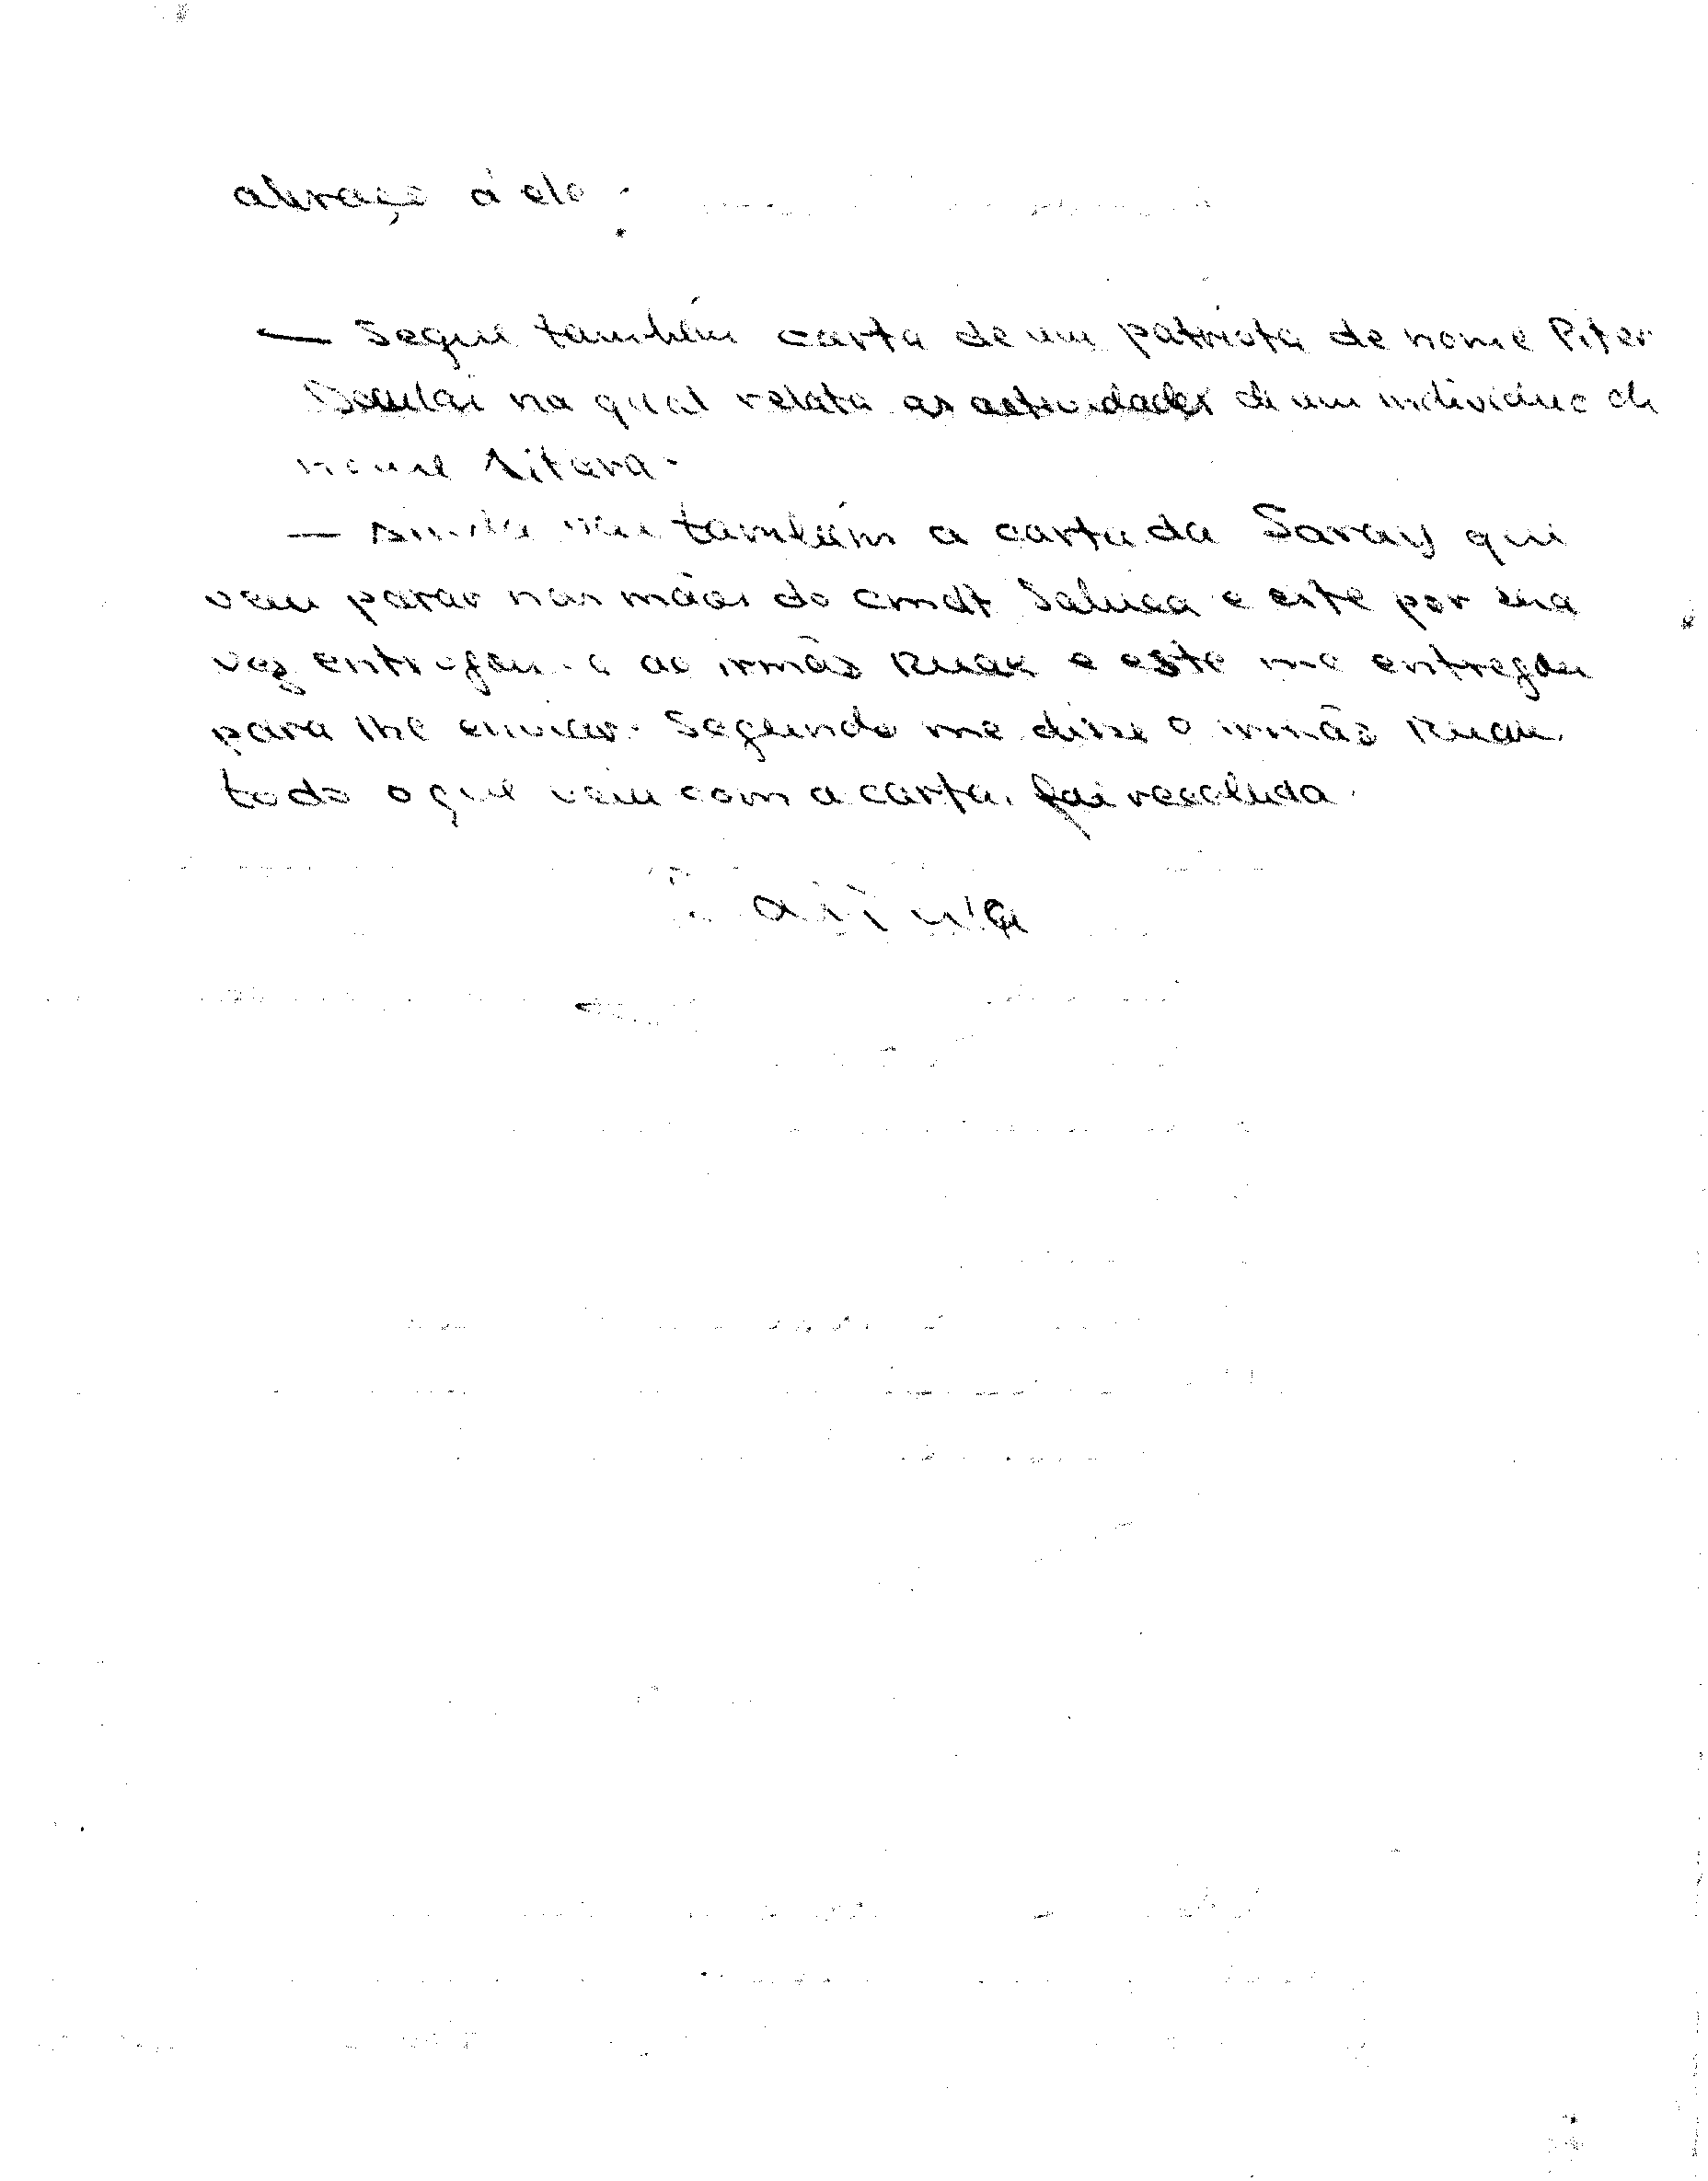 abraço á elo.
— Segue também carta de um patriota de nome Piter
na qual relata as actividades de um individuo de
nome Aitara.
— também a carta da Saray que
veiu parar nas mãos do cmdt Sabica e este por sua
vez entregou-a ao irmão Ruak e este me entregou
para lhe enviar. Segundo me disse o irmão Ruak
todo o que veiu com a carta, foi